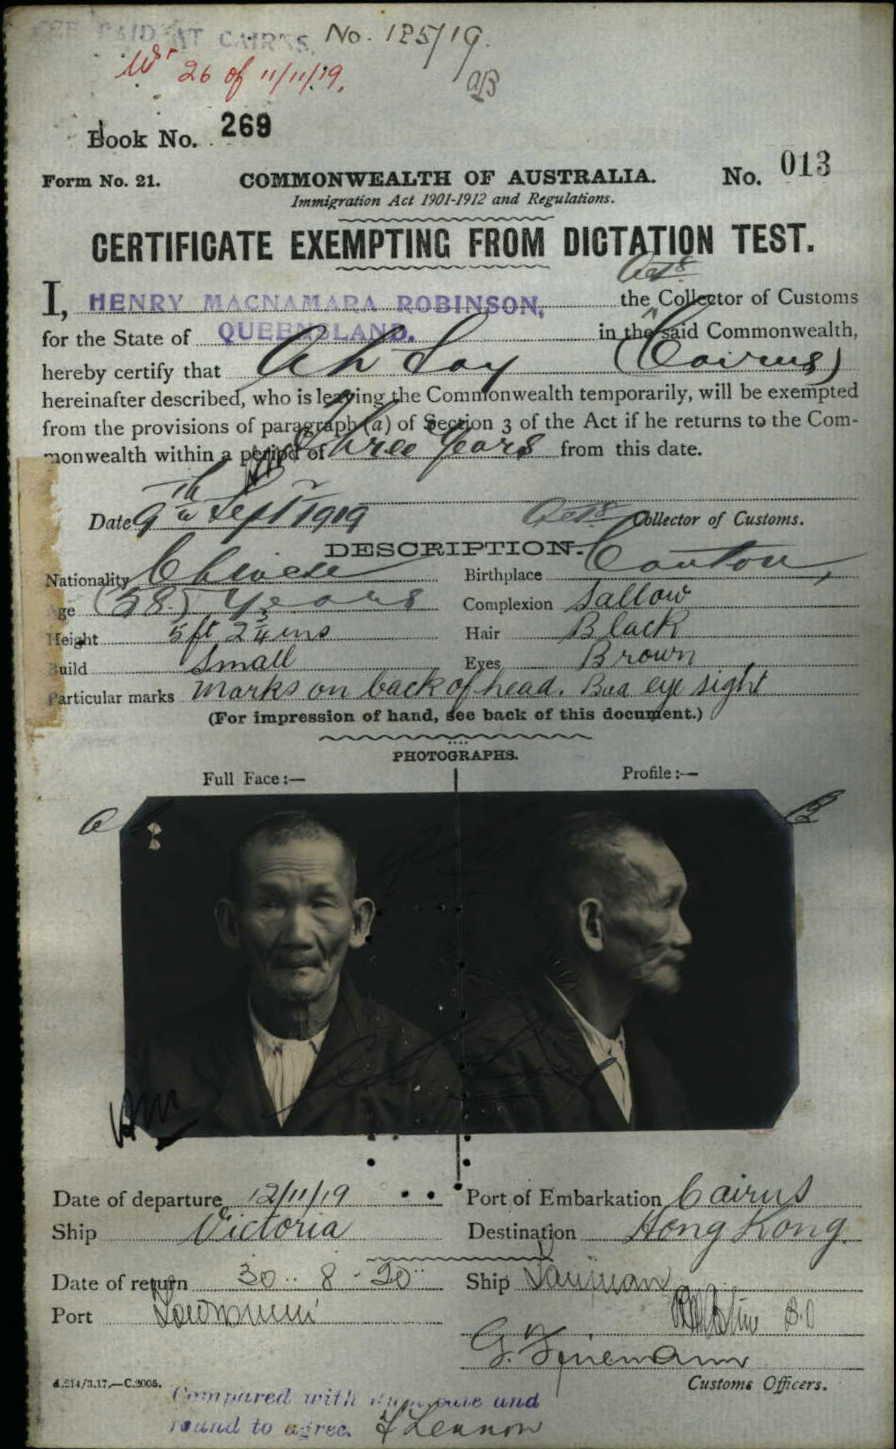 FEE PAID AT CAIRNS. No. 125/19.
26 of 11/11/19.
Book No. 269
Form No. 21. COMMONWEALTH OF AUSTRALIA. No. 013
Immigration Act 1901-1912 and Regulations.
CERTIFICATE EXEMPTING FROM DICTATION TEST.
I, HENRY MACNAMARA ROBINSON, the Collector of Customs
for the State of QUEENSLAND. in the said Commonwealth,
hereby certify that Ah Soy (Cairns)
hereinafter described, who is leaving the Commonwealth temporarily, will be exempted
from the provisions of paragraph (a) of Section 3 of the Act if he returns to the Com-
monwealth within a period of Three Years from this date.
Date 9th Sept 1919 Collector of Customs.
DESCRIPTION.
Nationality Chinese Birthplace Canton
Age (58) years Complexion Sallow
Height 5ft 2¾ ins Hair Black
Build Small Eyes Brown
Particular marks Marks on back of head. Bad eye sight
(For impression of hand, see back of this document.)
PHOTOGRAPHS.
Full Face:— Profile:—
A B
Date of departure 12/11/19 Port of Embarkation Cairns
Ship Victoria Destination Hong Kong.
Date of return 30 . 8 . 20 Ship Taiyuan
Port
Customs Officers.
Compared with and
found to agree.